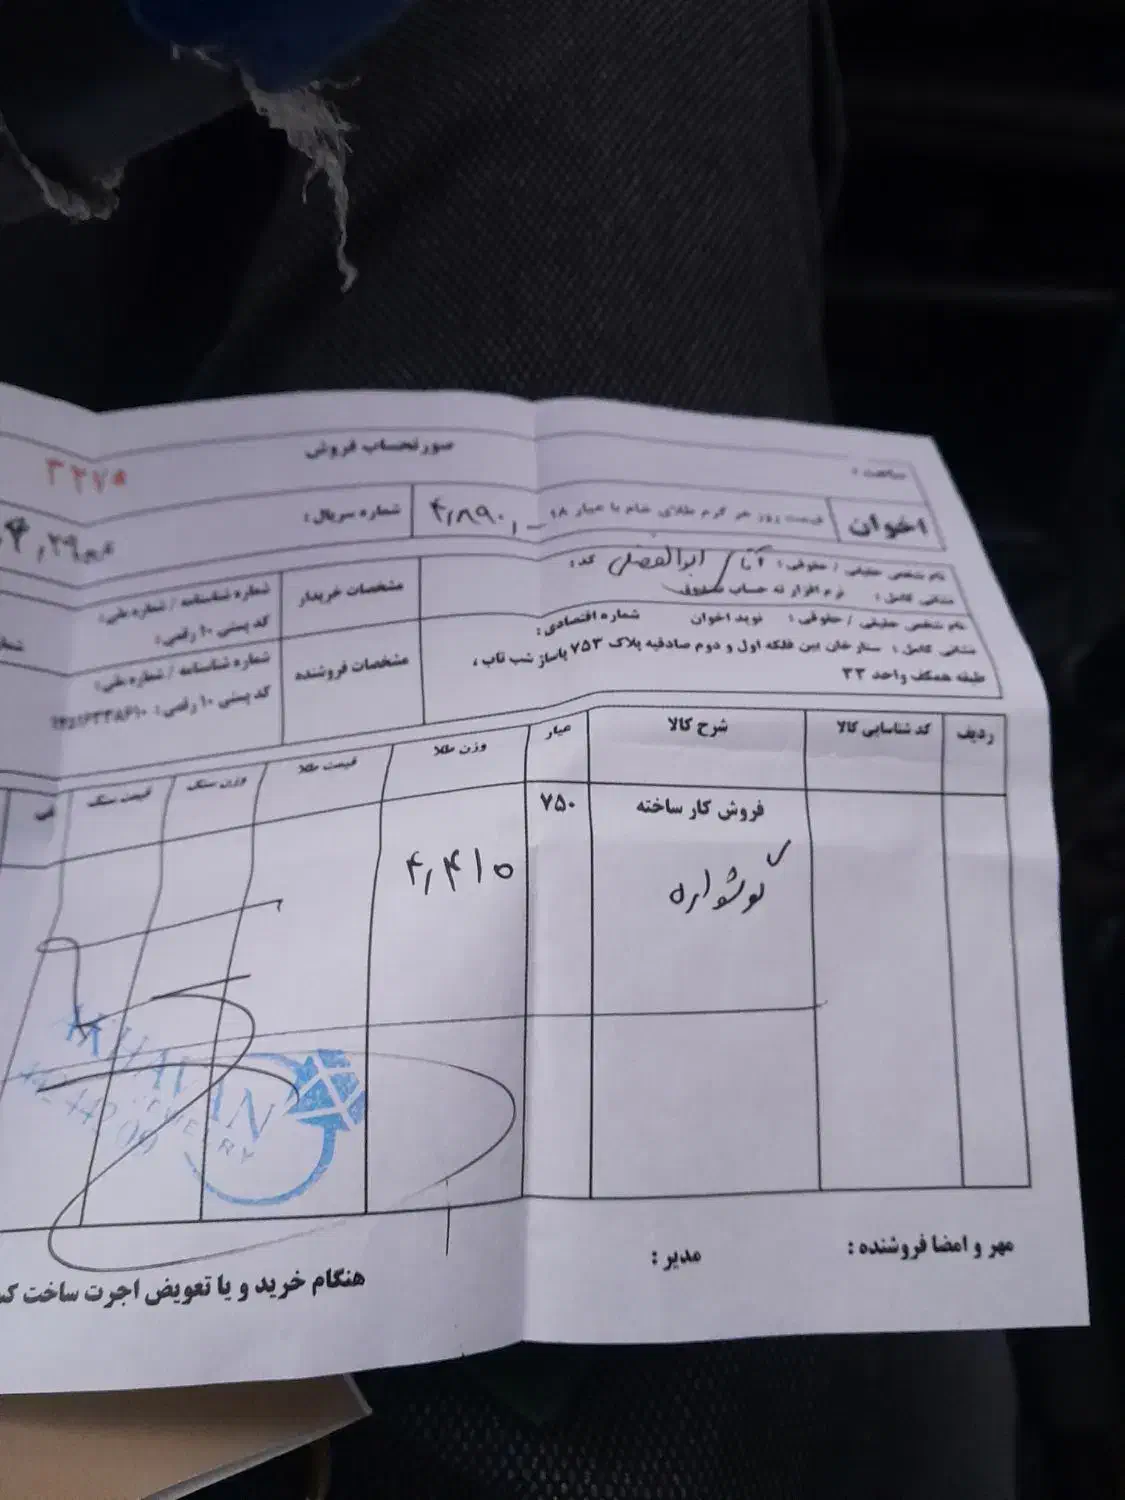 صورتحساب فروش
ساعت :
۳۲۷۵
اخوان
قیمت روز هر گرم طلای خام با عیار ۱۸
۴,۸۹۰,
شماره سریال :
نام شخص حقیقی / حقوقی : آقای ابوالفضلی کد :
نشانی کامل : نرم افزار ته حساب صندوق
مشخصات خریدار
شماره شناسنامه / شماره ملی :
کد پستی ۱۰ رقمی :
نام شخص حقیقی / حقوقی : نوید اخوان شماره اقتصادی :
نشانی کامل : ستارخان بین فلکه اول و دوم صادقیه پلاک ۷۵۳ پاساژ شب تاب ،
طبقه همکف واحد ۳۳
مشخصات فروشنده
شماره شناسنامه / شماره ملی :
کد پستی ۱۰ رقمی :
ردیف کد شناسایی کالا شرح کالا عیار وزن طلا قیمت طلا وزن سنگ قیمت سنگ
فروش کار ساخته ۷۵۰
گوشواره ۴,۴۱۰
AKHAVAN
JEWELRY
مهر و امضا فروشنده : مدیر :
هنگام خرید و یا تعویض اجرت ساخت